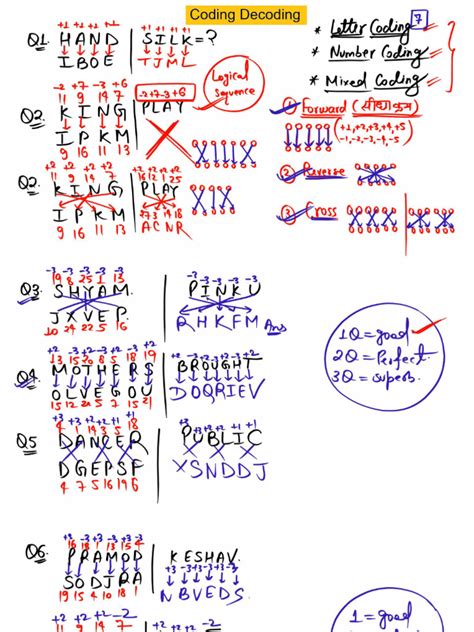 Coding Decoding
7
* Letter Coding
* Number Coding
* Mixed Coding
Q1. HAND | SILK = ?
+1 +1 +1 +1
IBOE | TJML
Logical sequence
-2 +7 -3 +6
11 9 14 7 -2+7-3+6
Q2. KING | PLAY
IPKM
9 16 11 13
① Forward (सीधा क्रम)
(+1,+2,+3,+4,+5
-1,-2,-3,-4,-5)
② Reverse
③ Cross
+2 +2 +2 +2
11 9 14 7
Q2. KING | PLAY
IPKM ACNR
9 16 11 13
-3 -3 -3 -3 -3
19 8 25 1 13
Q3. SHYAM. | PINKU
JXVEP. RHKFM Ans
10 24 22 5 16
1Q = good
2Q = Perfect
3Q = superb.
13 15 20 8 5 18 19
Q4. MOTHERS | BROUGHT
OLVEGOU DOQRIEV
15 12 22 5 7 15 21
Q5 DANCER | PUBLIC
DGEPSF XSNDDJ
4 7 5 16 19 6
+3 -3 +3 -3 +3 -3
16 18 1 13 15 4
Q6. PRAMOD | KESHAV.
+3 -3 +3 -3 +3 -3
SODJRA NBVEDS.
19 15 4 10 18 1
+2 +2 +2 -2
1 = good